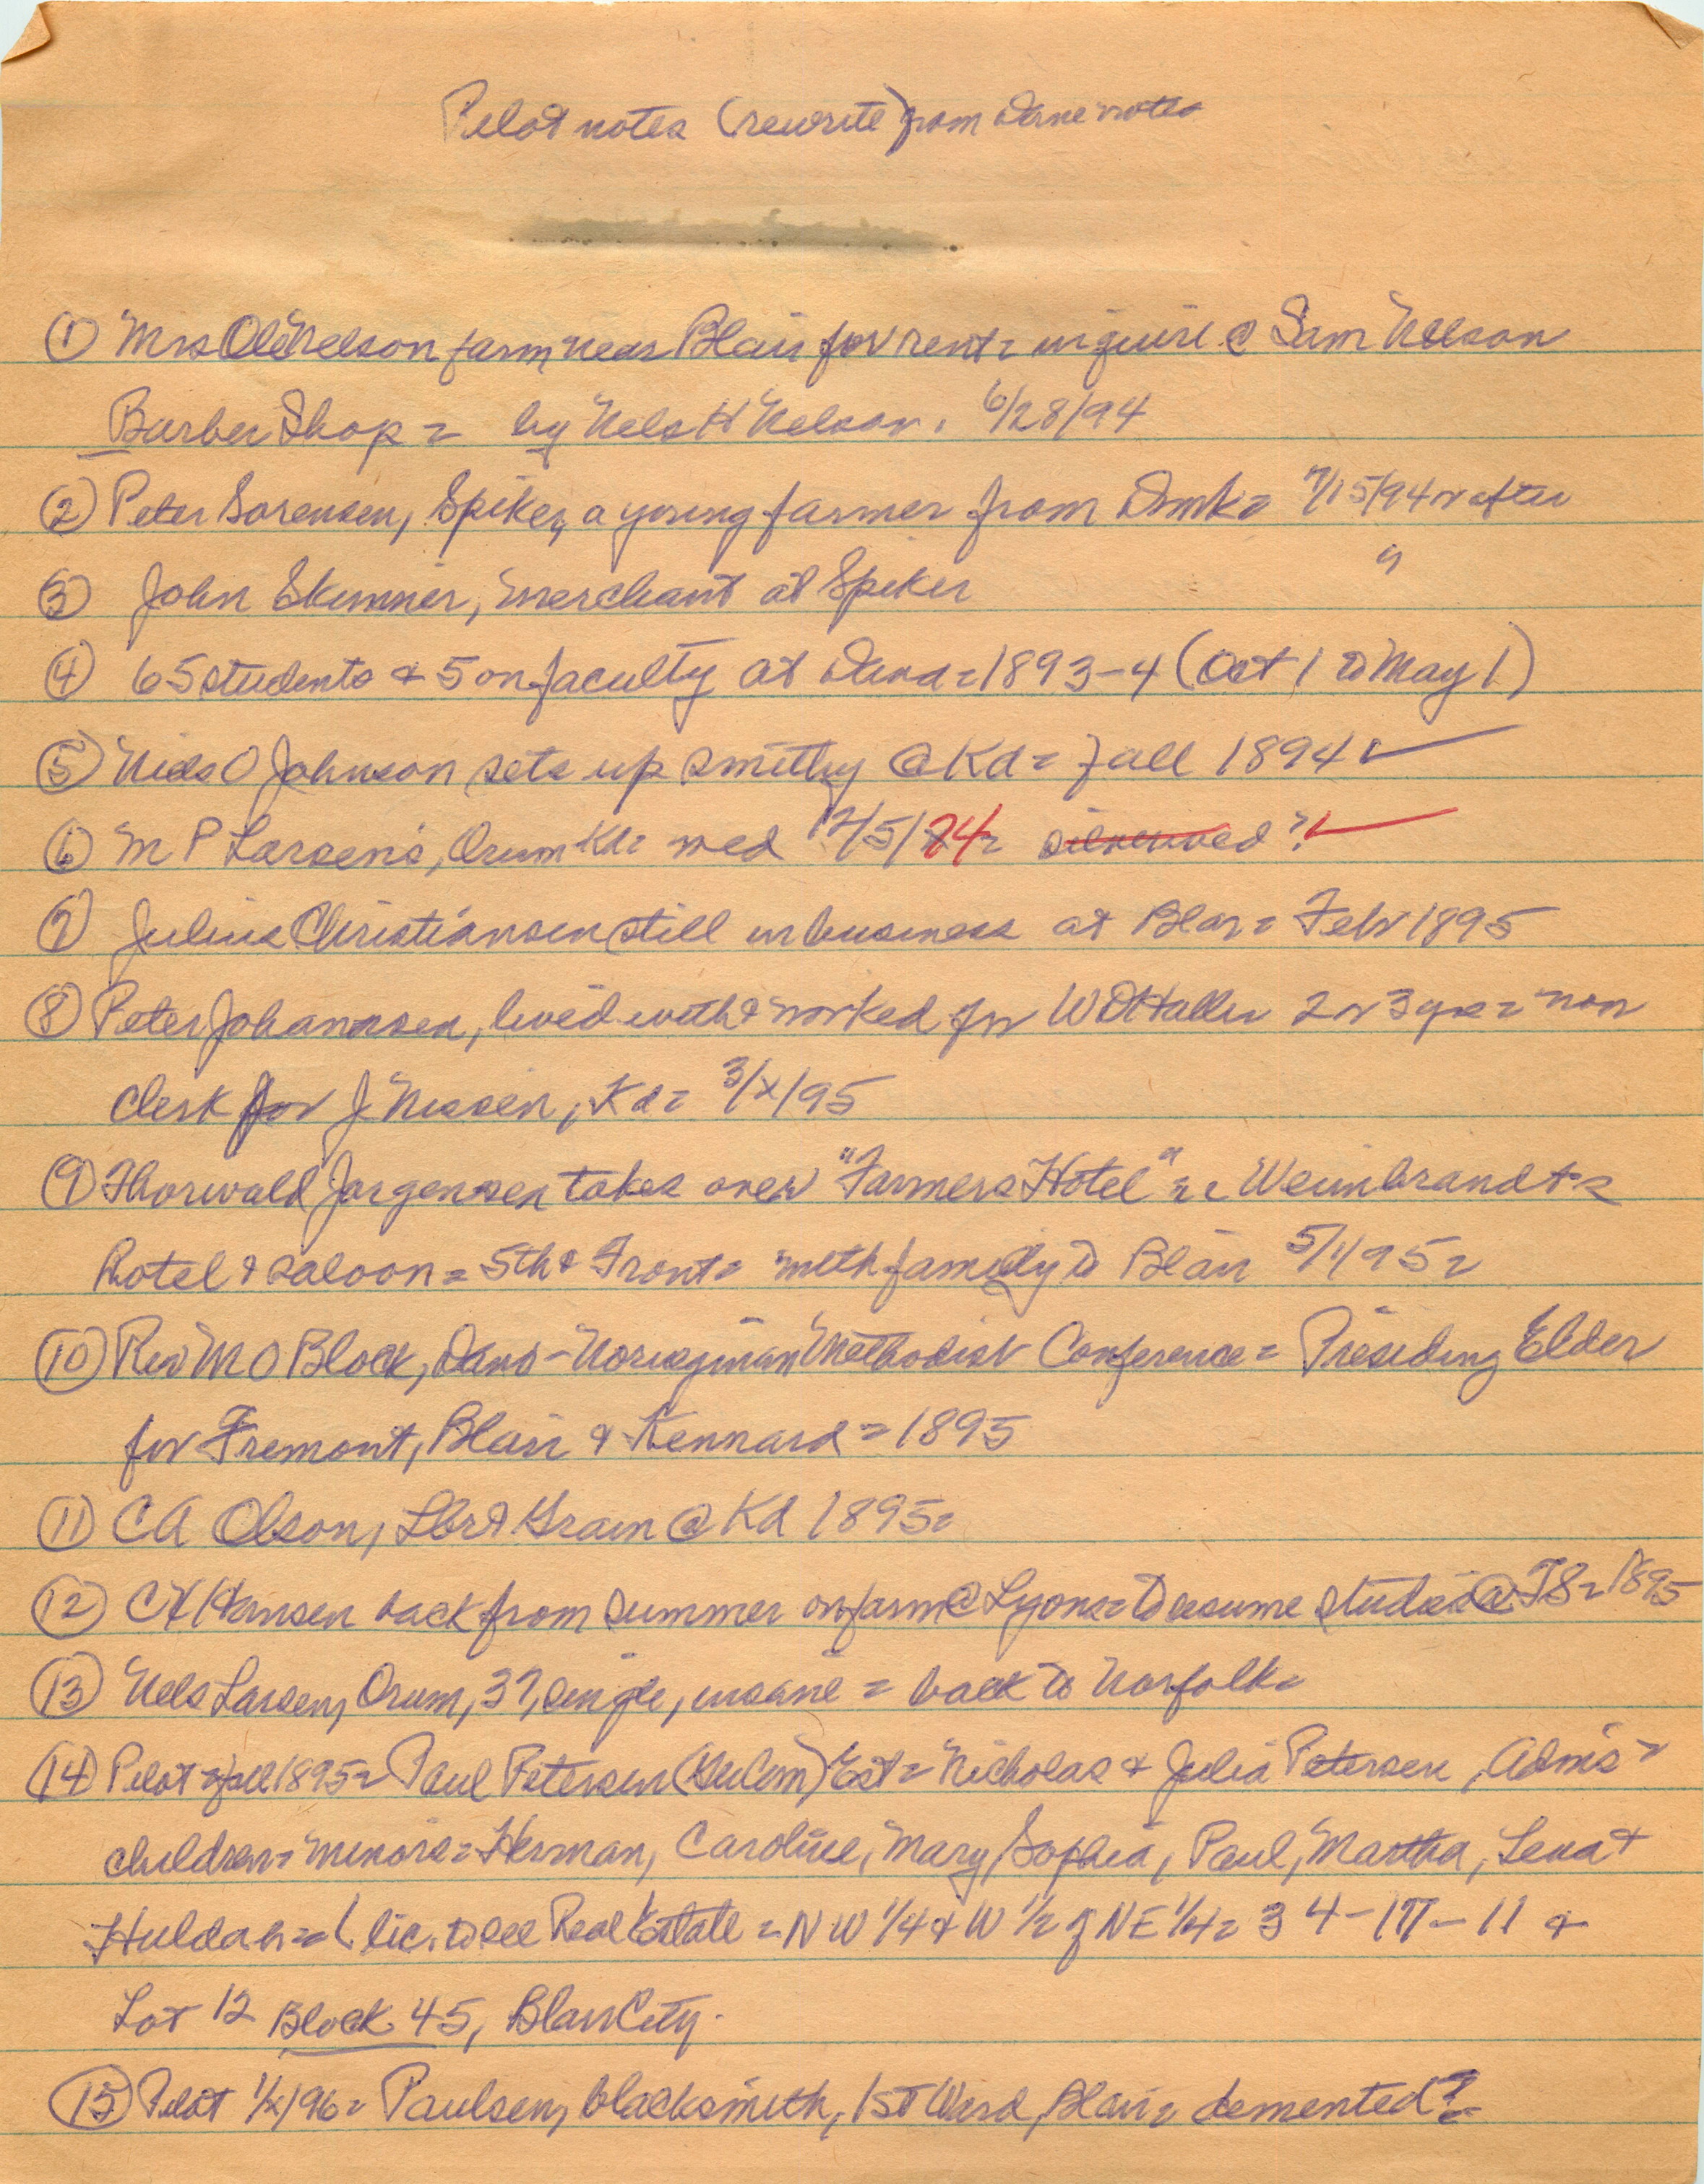 Pilot notes (rewrite) from Dane notes
① Mrs Ole Nelson farm near Blair for rent = inquire @ Sam Nelson
Barber Shop = by Nels H Nelson. 6/28/94
② Peter Sorensen, Spiker, a young farmer from Dmk = 7/15/94 or after
③ John Skinner, merchant at Spiker "
④ 65 students & 5 on faculty at Dana = 1893-4 (Oct 1 to May 1)
⑤ Niels O Johnson sets up smithy @ Kd = fall 1894 ✓
⑥ M P Larsen's, Orum Kd = wed 12/5/74 = silverwed ? ✓
⑦ Julius Christiansen still in business at Blair = Febr 1895
⑧ Peter Johannsen, lived with & worked for W D Haller 2 or 3 yrs = now
clerk for J. Nissen, Kd = 3/x/95
⑨ Thorwald Jorgensen takes over "Farmers Hotel" = Weimbrandt's
Hotel & saloon = 5th & Front = with family to Blair 5/1/95 =
⑩ Rev M O Block, Dano-Norwegian Methodist Conference = Presiding Elder
for Fremont, Blair & Kennard = 1895
⑪ CA Olson, Lbr & Grain @ Kd 1895 =
⑫ C H Hansen back from summer on farm @ Lyons = to resume studies @ TS = 1895
⑬ Nels Larsen, Orum, 37, single, insane = back to Norfolk =
⑭ Pilot = fall 1895 = Paul Petersen Est = Nicholas & Julia Petersen, Adms =
children = minors = Herman, Caroline, Mary, Sophia, Paul, Martha, Lena &
Huldah = lic. to sell Real Estate = NW 1/4 & W 1/2 of NE 1/4 = 34-17-11 &
Lot 12 Block 45, Blair City.
⑮ Pilot 1/x/96 = Paulsen, blacksmith, 1st Ward, Blair = demented? =